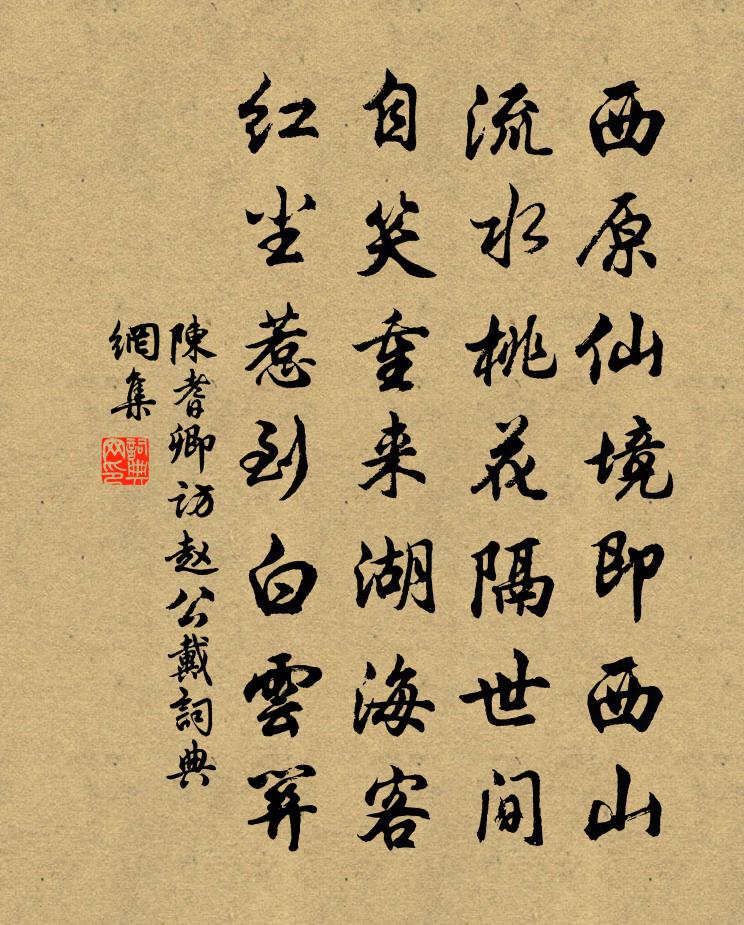 西原仙境即西山
流水桃花隔世间
自笑重来湖海客
红尘惹到白雲関
陳耆卿访赵公戴詞典
網集
詞典
网印